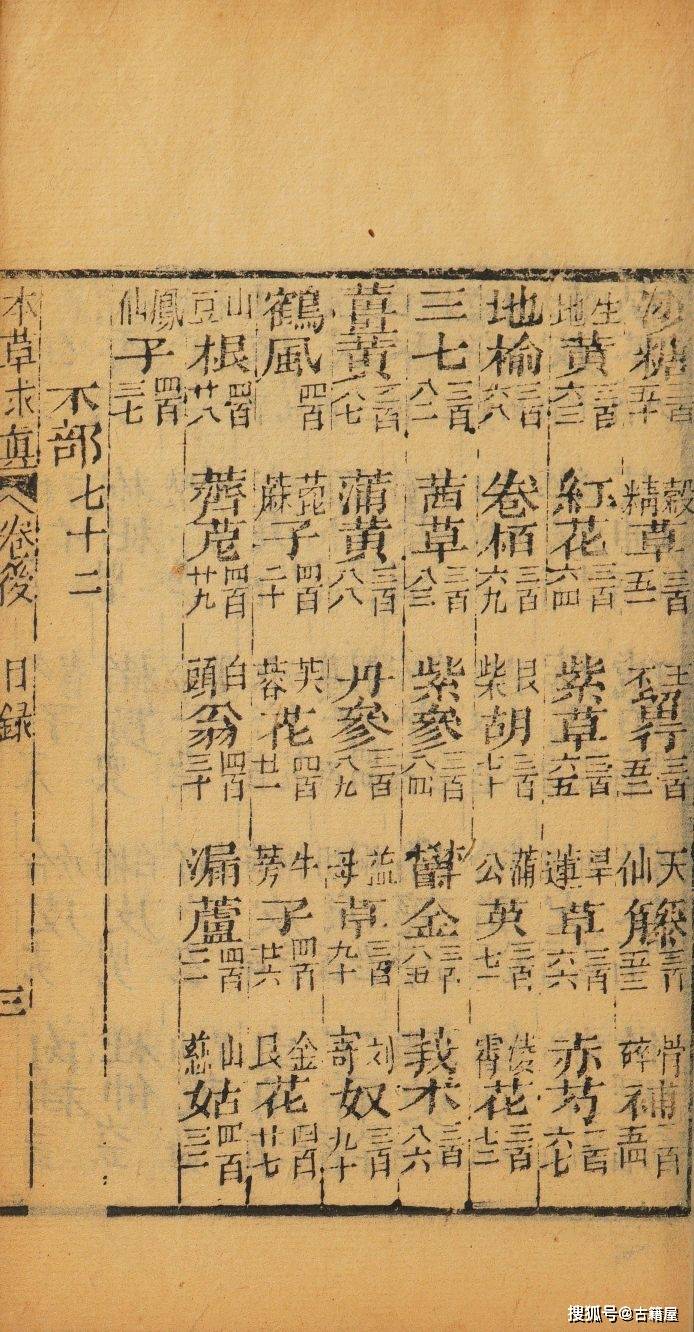 沙糖三百五十 穀精草三百五一 王不留行三百五二 天仙藤三百五三 骨碎補三百五四
生地黃三百六三 紅花三百六四 紫草三百六五 旱蓮草三百六六 赤芍三百六七
地榆三百六八 卷栢三百六九 艮柴胡三百七十 蒲公英三百七一 凌霄花三百七二
三七三百八二 茜草三百八三 紫參三百八四 鬱金三百八五 莪术三百八六
薑黃三百八七 蒲黃三百八八 丹參三百八九 益母草三百九十 刘寄奴三百九十
鶴風四百 蓖蔴子四百二十 芙蓉花四百廿一 牛蒡子四百廿六 金艮花四百廿七
山豆根四百廿八 薺苨四百廿九 白頭翁四百三十 漏蘆四百三一 山慈姑四百三二
鳳仙子四百三七
木部七十二
本草求真 卷後 目録 三
搜狐号@古籍屋